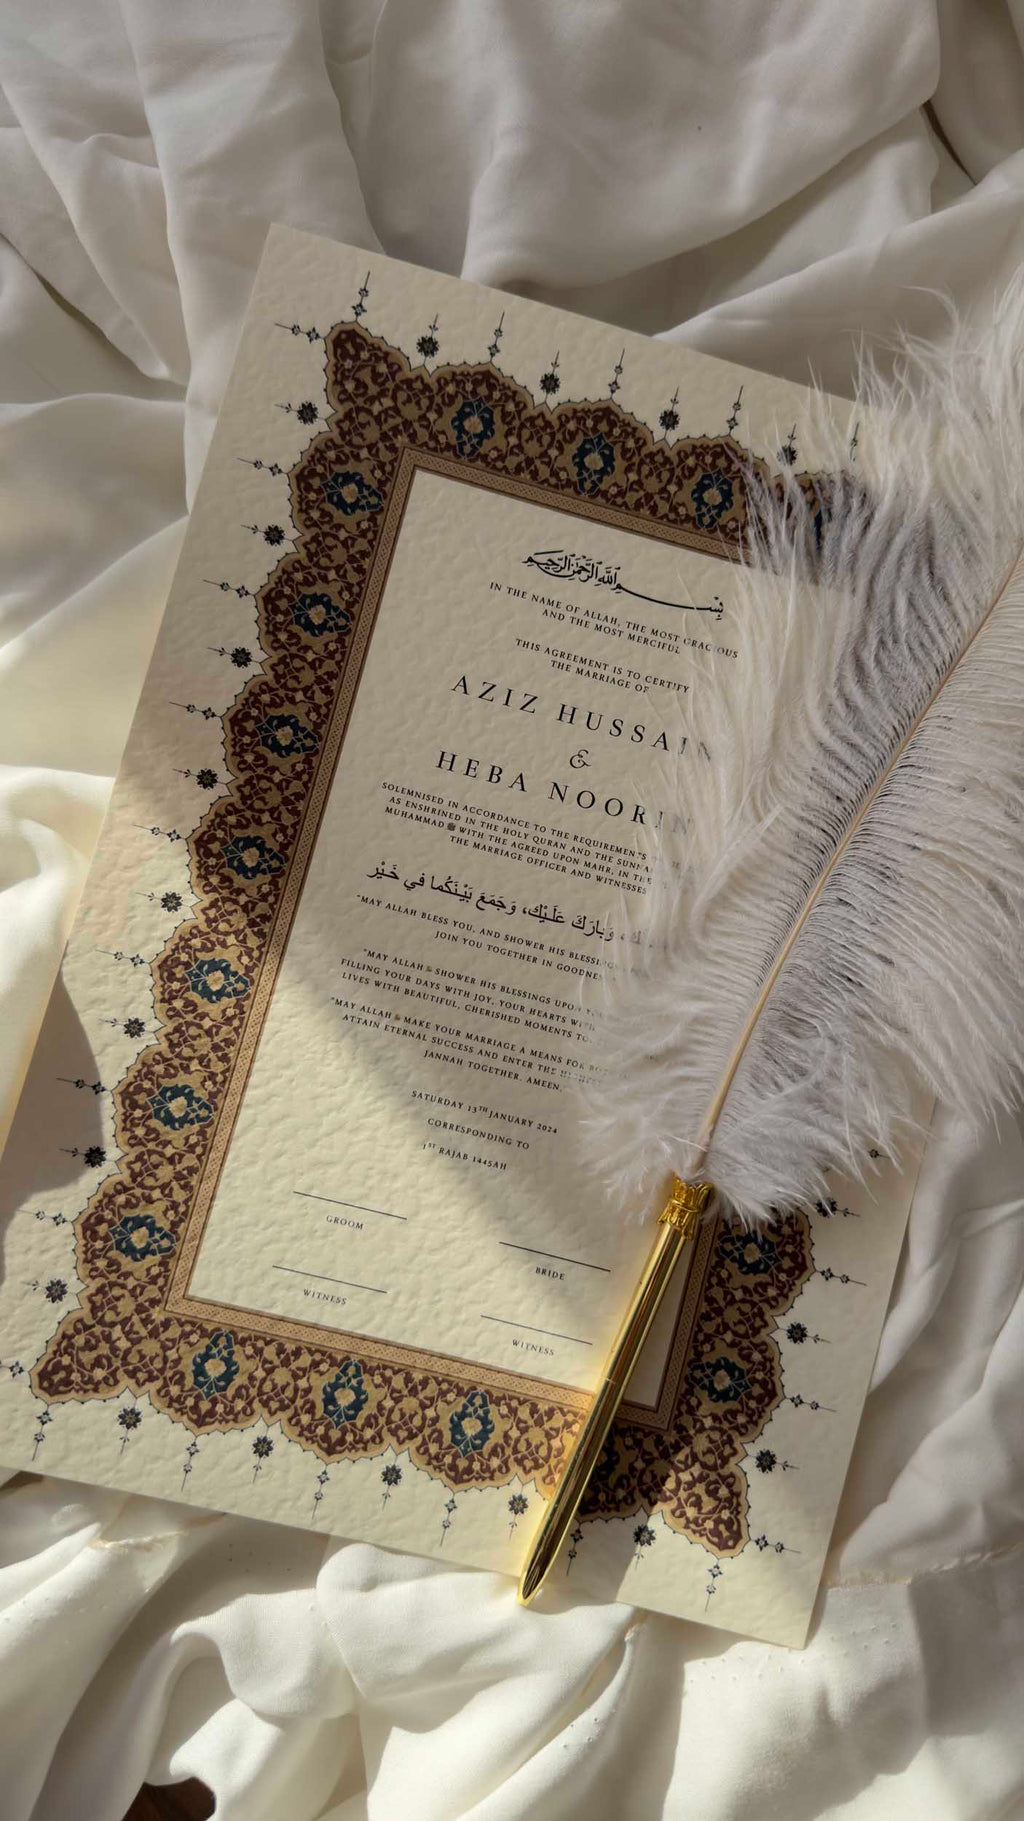 بِسْمِ اللَّهِ الرَّحْمٰنِ الرَّحِيمِ
IN THE NAME OF ALLAH, THE MOST GRACIOUS
AND THE MOST MERCIFUL
THIS AGREEMENT IS TO CERTIFY
THE MARRIAGE OF
AZIZ HUSSAIN
&
HEBA NOORIN
SOLEMNISED IN ACCORDANCE TO THE REQUIREMENTS
AS ENSHRINED IN THE HOLY QURAN AND THE
MUHAMMAD ﷺ WITH THE AGREED UPON MAHR, IN
THE MARRIAGE OFFICER AND WITNESSES
وَبَارَكَ عَلَيْكَ، وَجَمَعَ بَيْنَكُمَا فِي خَيْر
"MAY ALLAH BLESS YOU, AND SHOWER HIS
JOIN YOU TOGETHER IN
"MAY ALLAH SHOWER HIS BLESSINGS UPON
FILLING YOUR DAYS WITH JOY, YOUR HEARTS
LIVES WITH BEAUTIFUL, CHERISHED MOMENTS
"MAY ALLAH MAKE YOUR MARRIAGE A MEANS FOR
ATTAIN ETERNAL SUCCESS AND ENTER THE
JANNAH TOGETHER. AMEEN.
SATURDAY 13TH JANUARY 2024
CORRESPONDING TO
1ST RAJAB 1445AH
GROOM
BRIDE
WITNESS
WITNESS